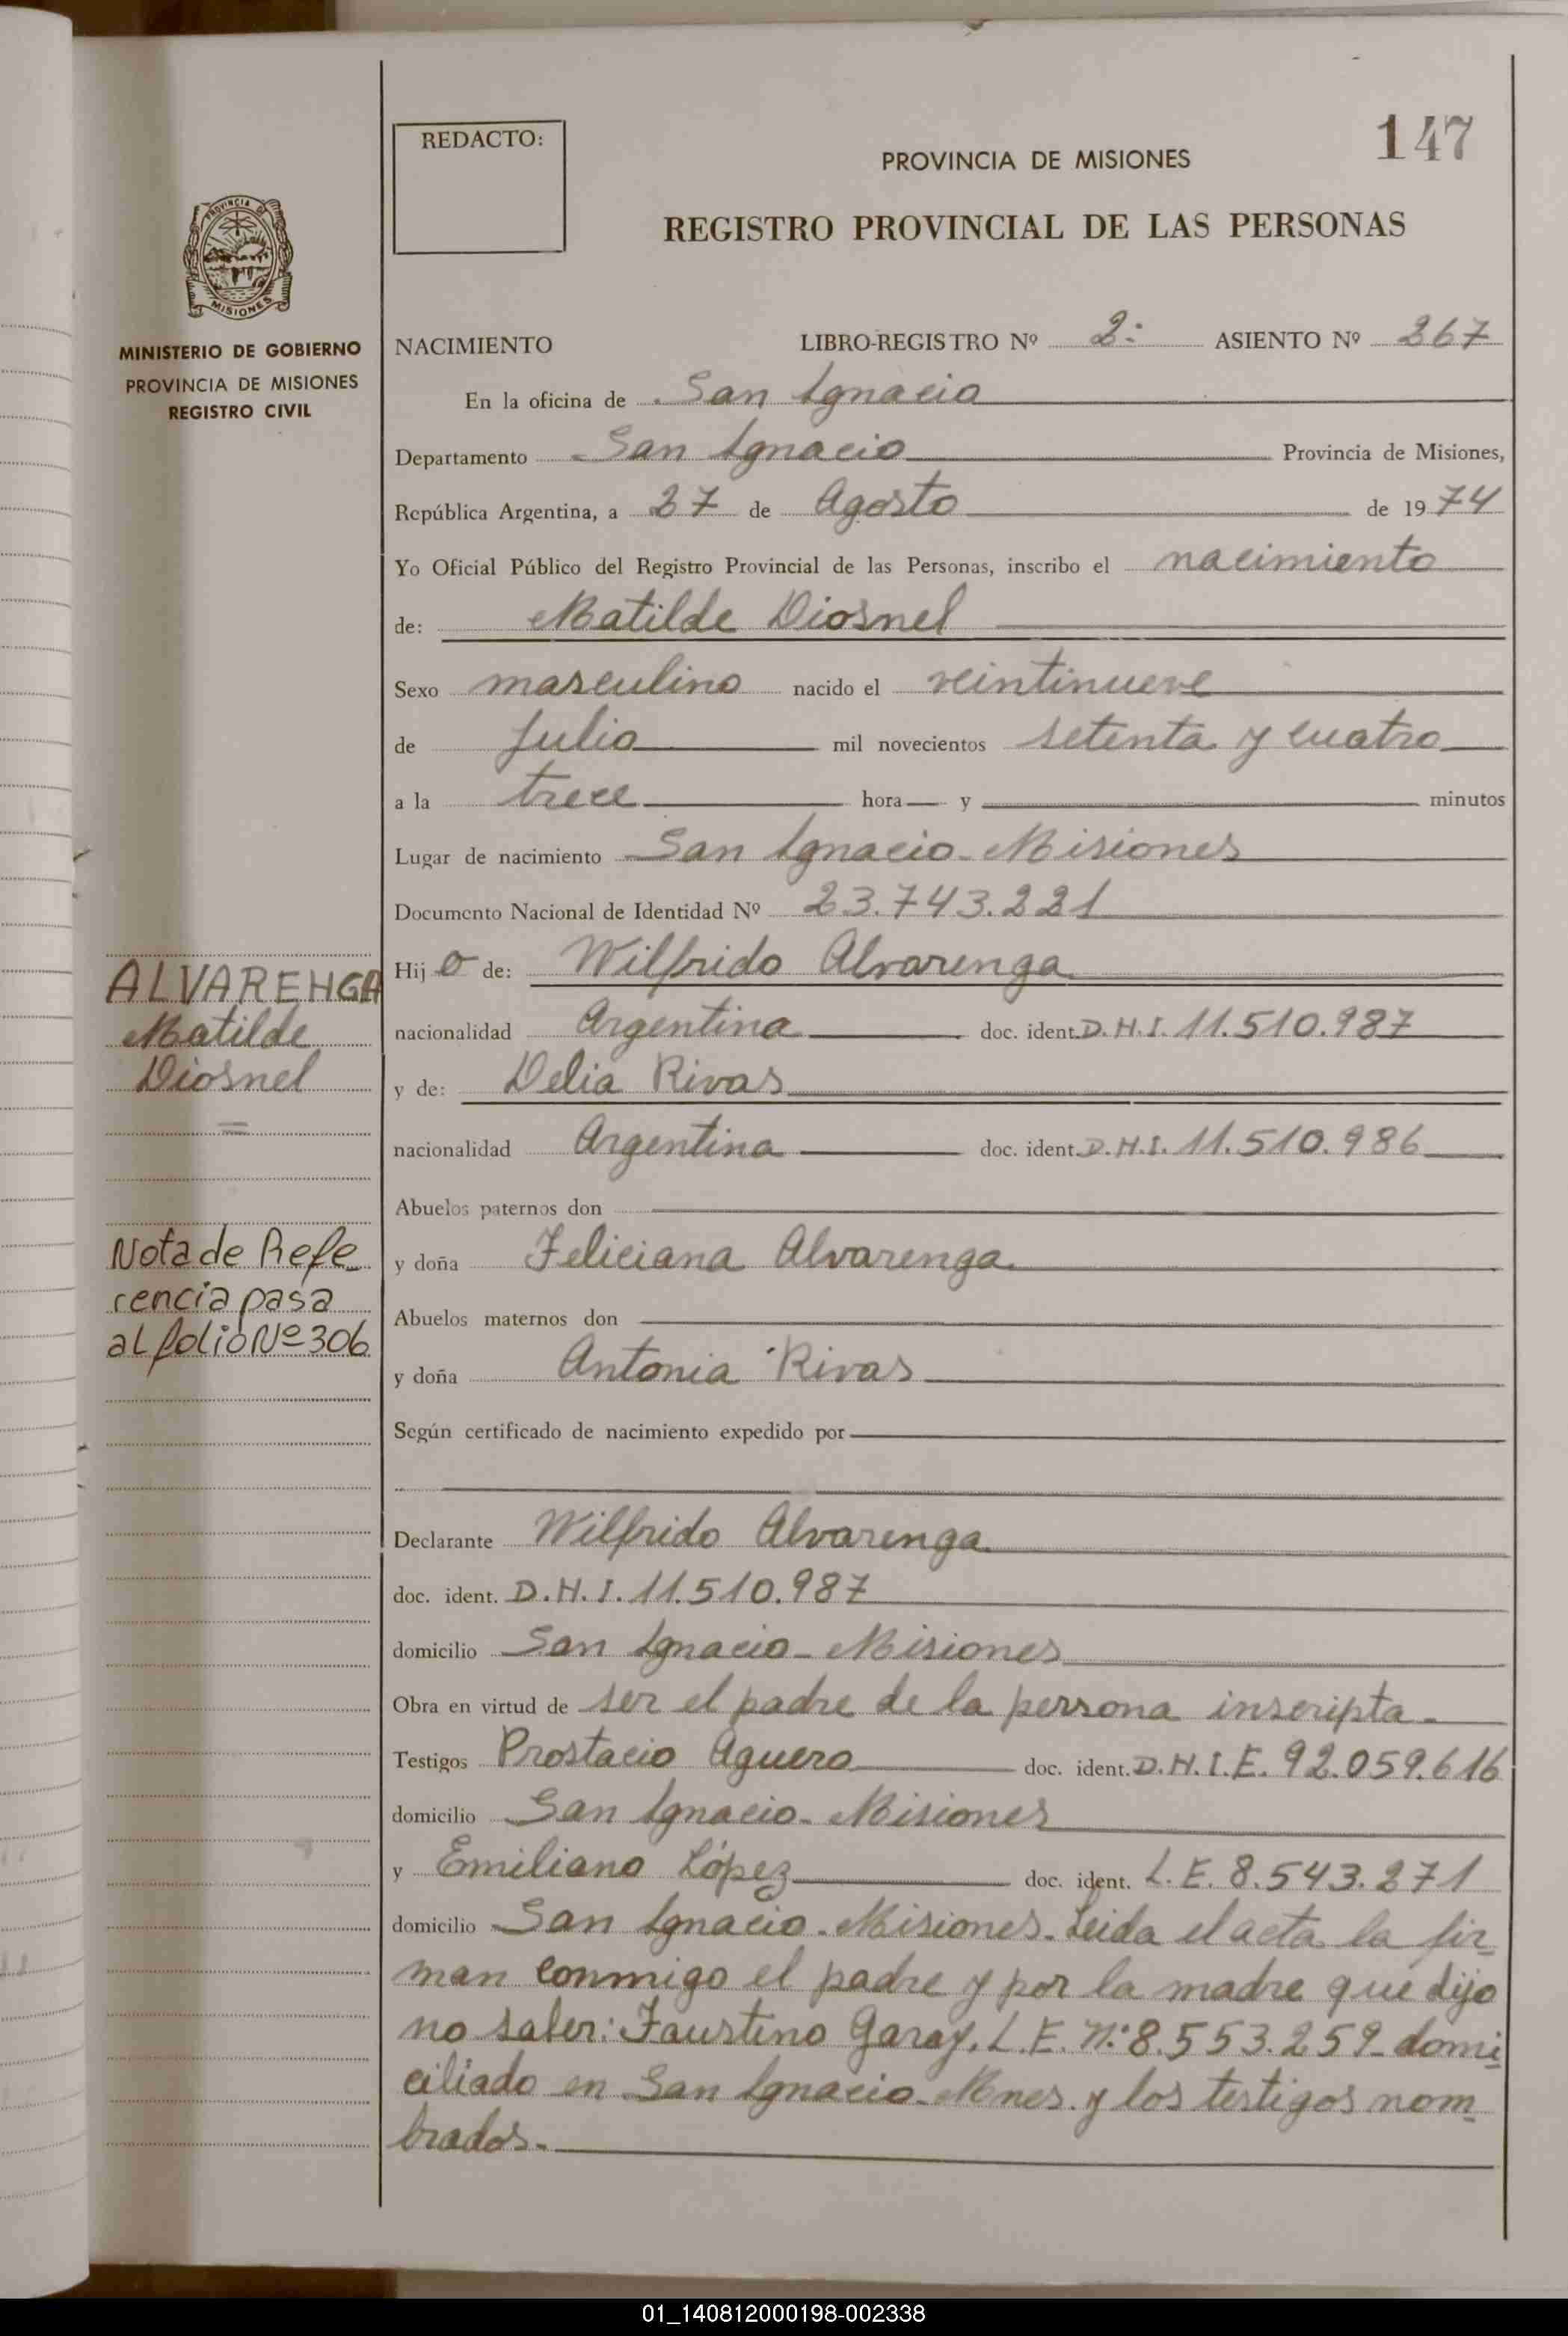 147
REDACTO:
PROVINCIA DE MISIONES
REGISTRO PROVINCIAL DE LAS PERSONAS
PROVINCIA DE
MISIONES
MINISTERIO DE GOBIERNO
PROVINCIA DE MISIONES
REGISTRO CIVIL
NACIMIENTO LIBRO-REGISTRO Nº 2: ASIENTO Nº 267
En la oficina de San Ignacio
Departamento San Ignacio Provincia de Misiones,
República Argentina, a 27 de Agosto de 1974
Yo Oficial Público del Registro Provincial de las Personas, inscribo el nacimiento
de: Matilde Diosnel
Sexo masculino nacido el veintinueve
de Julio mil novecientos setenta y cuatro
a la trece hora y minutos
Lugar de nacimiento San Ignacio-Misiones
Documento Nacional de Identidad Nº 23.743.221
Hijo de: Wilfrido Alvarenga
nacionalidad Argentina doc. ident. D.N.I. 11.510.987
y de: Delia Rivas
nacionalidad Argentina doc. ident. D.N.I. 11.510.986
Abuelos paternos don
y doña Feliciana Alvarenga
Abuelos maternos don
y doña Antonia Rivas
Según certificado de nacimiento expedido por
Declarante Wilfrido Alvarenga
doc. ident. D.N.I. 11.510.987
domicilio San Ignacio-Misiones
Obra en virtud de ser el padre de la persona inscripta-
Testigos Prostacio Aguero doc. ident. D.N.I.E. 92.059.616
domicilio San Ignacio-Misiones
y Emiliano López doc. ident. L.E. 8.543.271
domicilio San Ignacio-Misiones. Leida el acta la fir-
man conmigo el padre y por la madre que dijo
no saber: Faustino Garay. L.E. Nº 8.553.259-domi-
ciliado en San Ignacio-Mnes. y los testigos nom-
brados.-
ALVARENGA
Matilde
Diosnel
=
Nota de Refe-
rencia pasa
al folio Nº 306
01_140812000198-002338